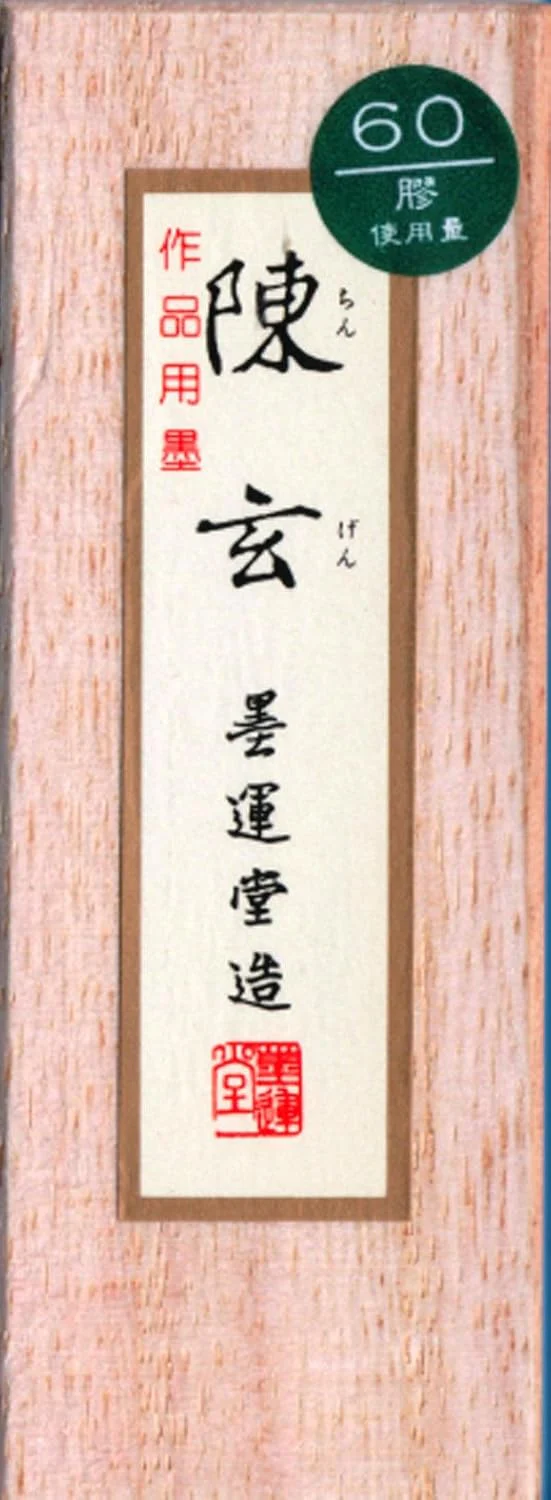 60
膠
使用量
作品用墨
陳玄
ちんげん
墨運堂造
墨運堂